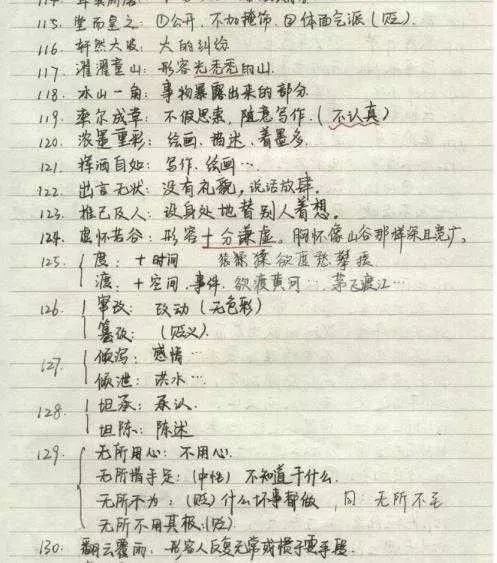 115. 堂而皇之：①公开，不加掩饰 ②体面气派（贬）
116. 轩然大波：大的纠纷
117. 濯濯童山：形容光秃秃的山.
118. 冰山一角：事物暴露出来的部分
119. 率尔成章：不假思索，随意写作.（不认真）
120. 浓墨重彩：绘画、描述、着墨多.
121. 挥洒自如：写作、绘画…
122. 出言无状：没有礼貌，说话放肆.
123. 推己及人：设身处地替别人着想.
124. 虚怀若谷：形容十分谦虚。胸怀像山谷那样深且宽广。
125. 度：+时间 猿猱欲度愁攀援
渡：+空间、事件 欲渡黄河… 茅飞渡江…
126. 窜改：改动（无色彩）
篡改：（贬义）
127. 倾泻：感情…
倾泄：洪水…
128. 坦承：承认.
坦陈：陈述
129. 无所用心：不用心.
无所措手足：（中性）不知道干什么.
无所不为：（贬）什么坏事都做，同：无所不至
无所不用其极：（贬）
130. 翻云覆雨：形容人反复无常或惯于耍手段.